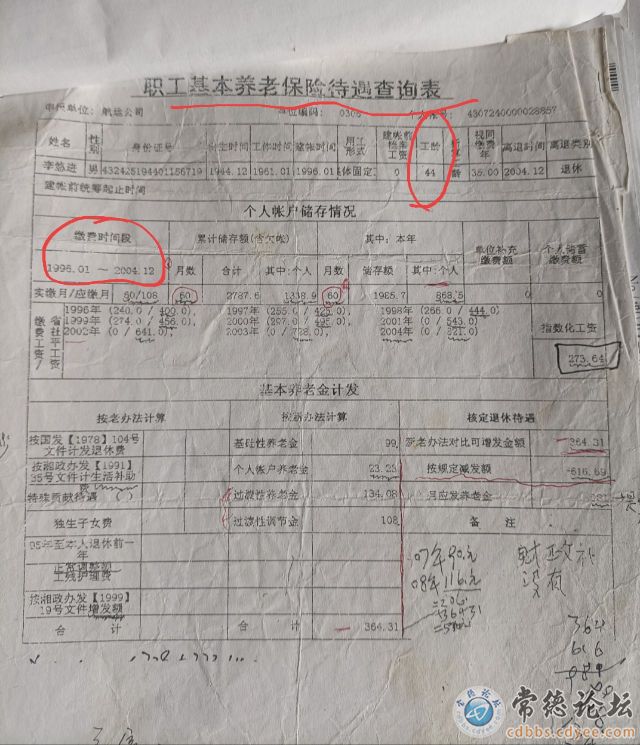 职工基本养老保险待遇查询表
航运公司 单位编码: 0306 4307240000028857
姓名 性别 身份证号 出生时间 工作时间 建帐时间 用工形式 建帐前档案工资 工龄 视同缴费年 离退时间 离退类别
男 432425194401156719 1944.12 1961.01 1996.01 集体固定 0 44 35.00 2004.12 退休
建帐前统筹起止时间
个人帐户储存情况
缴费时间段 累计储存额(含欠帐) 其中:本年 单位补充缴费额 个人储蓄缴费额
1996.01 ~ 2004.12 月数 合计 其中:个人 月数 储存额 其中:个人
实缴月/应缴月 60/108 60 2787.6 1338.9 60 868.5 0 0
缴费工资/省社平工资
1996年 (240.0/ 400.0), 1997年 (255.0/ 425.0) 1998年 (266.0/ 444.0)
1999年 (274.0/ 456.0), 2000年 2001年 (0/ 543.0)
2002年 (0/ 641.0) 2003年 2004年 (0/ 821.0)
指数化工资
273.64
基本养老金计发
按老办法计算 按新办法计算 核定退休待遇
按国发【1978】104号文件计发退休费 基础性养老金 99. 新老办法对比可增发金额 364.31
按湘政办发【1991】35号文件计生活补助费 个人帐户养老金 23.23 按规定减发额 -616.69
特殊贡献待遇 过渡性养老金 134.08 月应发养老金
独生子女费 过渡性调节金 108 备 注
95年至本人退休前一年
正常调整额
工残护理费
按湘政办发【1999】19号文件增发额
合 计 合 计 364.31
07年90元
08年116元
财政社
没有
364
616
常德论坛
cdbbs.cdyee.com